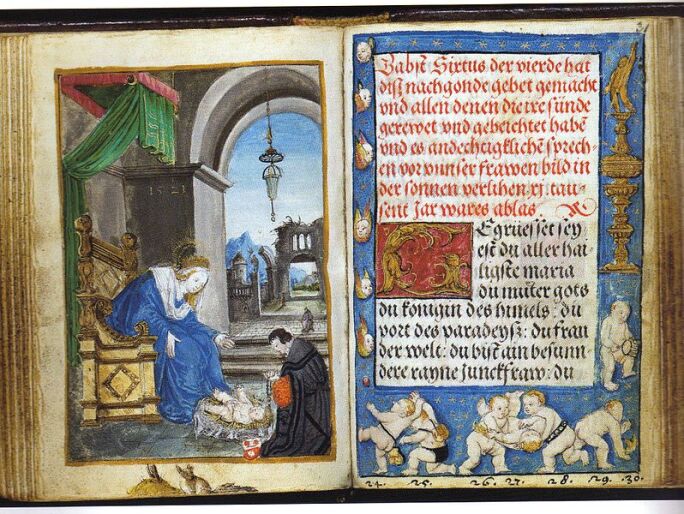 1521
Babst Sixtus der vierde hat
diß nachgonde gebet gemacht
vnd allen denen die ire sünde
gerewet vnd gebeichtet haben
vnd es andechtigklichen sprech-
en vor vnser frawen bild in
der sonnen verlihen xj tau-
sent jar wares ablas
Egruesset sey
est du aller hai-
ligste maria
du muter gots
du konigin des himels : du
port des paradeyß : du frau
der welt : du bist ain besunn
dere rayne junckfraw : du
24. 25. 26. 27. 28. 29. 30.